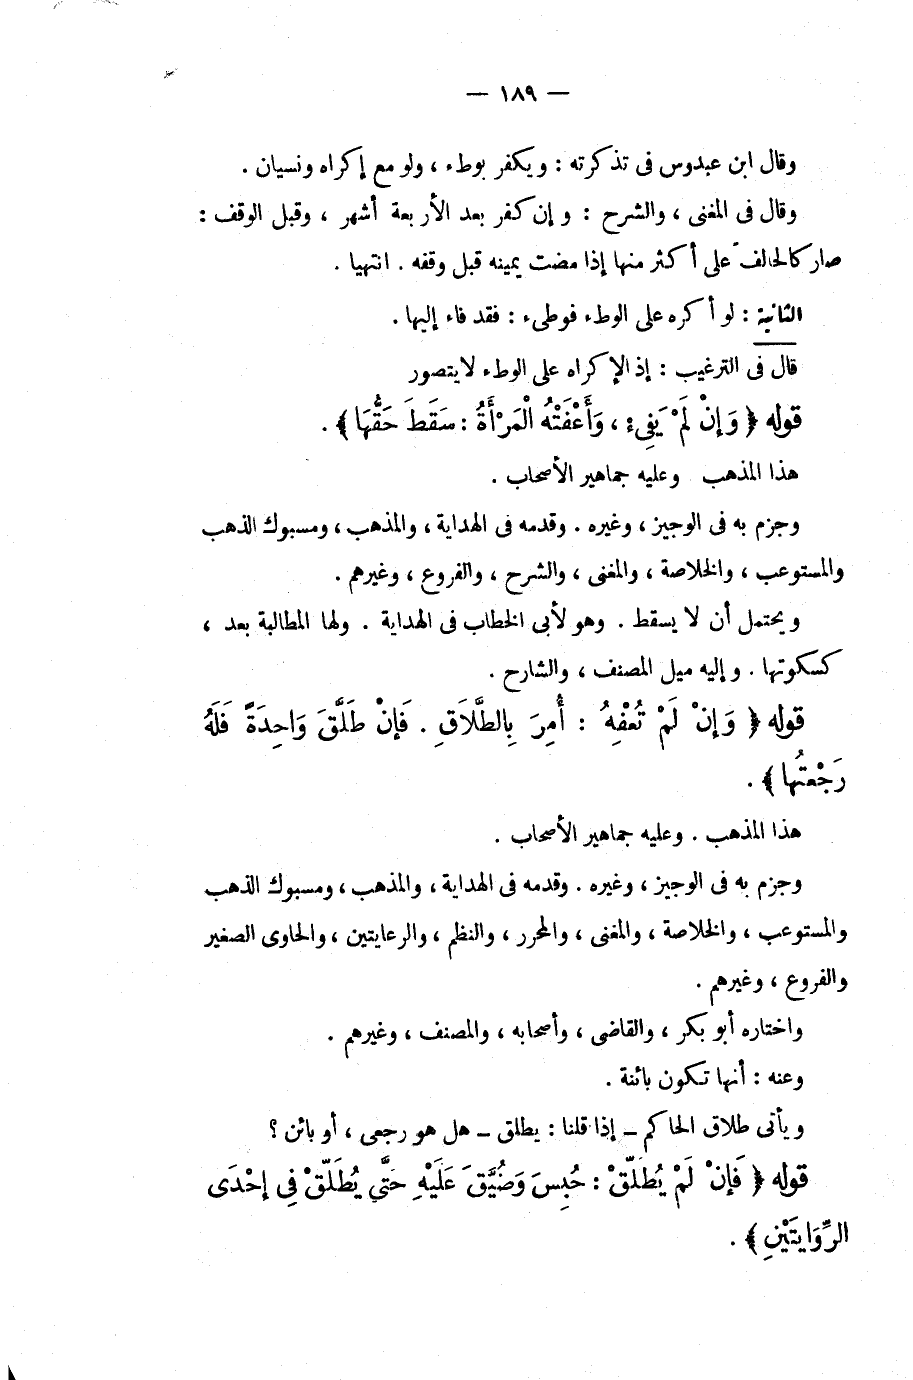 — ١٨٩ —
وقال ابن عبدوس فى تذكرته : ويكفر بوطء ، ولو مع إكراه ونسيان .
وقال فى المغنى ، والشرح : وإن كفر بعد الأربعة أشهر ، وقبل الوقف :
صار كالحالف على أكثر منها إذا مضت يمينه قبل وقفه . انتهيا .
الثانية : لو أكره على الوطء فوطىء : فقد فاء إليها .
قال فى الترغيب : إذ الإكراه على الوطء لايتصور
قوله ﴿ وَإِنْ لَمْ يَفِىءْ ، وَأَعْفَتْهُ الْمَرْأَةُ : سَقَطَ حَقُّهَا ﴾ .
هذا المذهب وعليه جماهير الأصحاب .
وجزم به فى الوجيز ، وغيره . وقدمه فى الهداية ، والمذهب ، ومسبوك الذهب
والمستوعب ، والخلاصة ، والمغنى ، والشرح ، والفروع ، وغيرهم .
ويحتمل أن لا يسقط . وهو لأبى الخطاب فى الهداية . ولها المطالبة بعد ،
كسكوتها . وإليه ميل المصنف ، والشارح .
قوله ﴿ وَإِنْ لَمْ تُعْفِهِ : أُمِرَ بِالطَّلَاقِ . فَإِنْ طَلَّقَ وَاحِدَةً فَلَهُ
رَجْعَتُهَا ﴾ .
هذا المذهب . وعليه جماهير الأصحاب .
وجزم به فى الوجيز ، وغيره . وقدمه فى الهداية ، والمذهب ، ومسبوك الذهب
والمستوعب ، والخلاصة ، والمغنى ، والمحرر ، والنظم ، والرعايتين ، والحاوى الصغير
والفروع ، وغيرهم .
واختاره أبو بكر ، والقاضى ، وأصحابه ، والمصنف ، وغيرهم .
وعنه : أنها تكون بائنة .
ويأتى طلاق الحاكم – إذا قلنا : يطلق – هل هو رجعى ، أو بائن ؟
قوله ﴿ فَإِنْ لَمْ يُطَلِّقْ : حُبِسَ وَضُيِّقَ عَلَيْهِ حَتَّى يُطَلِّقْ فِى إِحْدَى
الرِّوَايَتَيْنِ ﴾ .